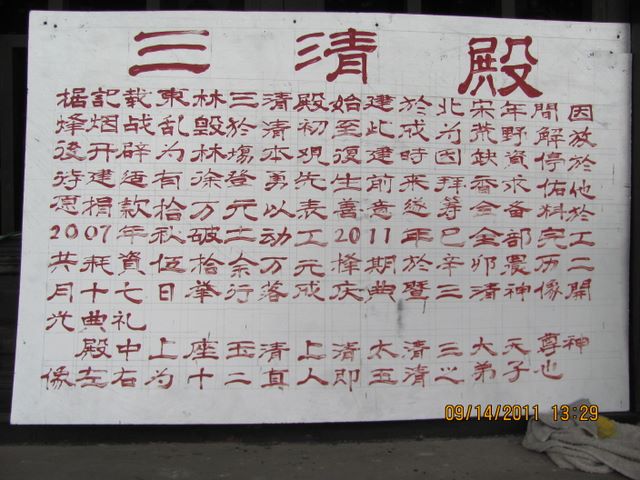 三清殿
椐記载東林三清殿始建於北宋年間因
烽烟战乱毁於清初至此成为荒野解放
後开辟为林場本观復建時因缺資停於
待建适有徐登勇先生前来拜香求佑他
愿捐款拾万元以表善意遂筹全备料於
2007年秋破土动工2011年巳全部完工
共耗資伍拾余万元择期於辛卯農历二
月十七日举行落成庆典暨三清神像開
光典礼
殿中上座玉清上清太清三大天尊神
像左右为十二真人即玉清之弟子也
09/14/2011 13:29